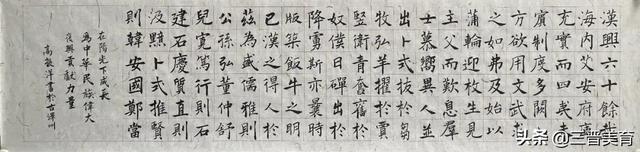 漢興六十餘載
海內艾安府庫
充實而四夷未
賓制度多闕上
方欲用文武求
之如弗及始以
蒲輪迎枚生見
主父而歎息群
士慕嚮異人並
出卜式拔於芻
牧弘羊擢於賈
豎衛青奮於
奴僕日磾出於
降虜斯亦曩時
版築飯牛之明
已漢之得人於
茲為盛儒雅則
公孫弘董仲舒
兒寬篤行則石
建石慶質直則
汲黯卜式推賢
則韓安國鄭當
在陽光下成長
為中華民族偉大
復興貢獻力量
高敬洋書於古澤州
头条 @三晋美育